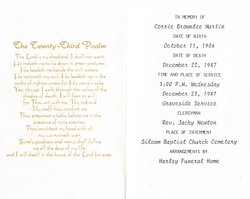 The Twenty-Third Psalm
The Lord is my shepherd; I shall not want.
He maketh me to lie down in green pastures:
He leadeth me beside the still waters.
He restoreth my soul: He leadeth me in the
paths of righteousness for His name's sake.
Yea, though I walk through the valley of the
shadow of death, I will fear no evil:
for Thou art with me; Thy rod and
Thy staff they comfort me.
Thou preparest a table before me in the
presence of mine enemies:
Thou anointest my head with oil;
my cup runneth over.
Surely goodness and mercy shall follow
me all the days of my life;
and I will dwell in the house of the Lord for ever.
IN MEMORY OF
Corrie Brownlee Martin
DATE OF BIRTH
October 11, 1906
DATE OF DEATH
December 21, 1987
TIME AND PLACE OF SERVICE
3:00 P.M. Wednesday
December 23, 1987
Graveside Service
CLERGYMAN
Rev. Jacky Newton
PLACE OF INTERMENT
Siloam Baptist Church Cemetery
ARRANGEMENTS BY
Harley Funeral Home